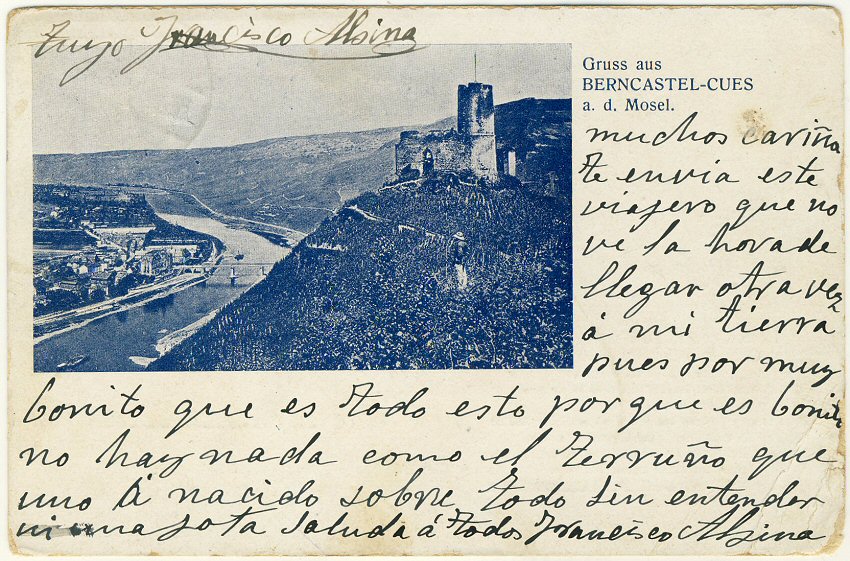 Tuyo Francisco Alsina
Gruss aus
BERNCASTEL-CUES
a. d. Mosel.
muchos cariña
te envia este
viajero que no
ve la hora de
llegar otra vez
á mi tierra
pues por muy
bonito que es todo esto porque es bonito
no hay nada como el terruño que
uno á nacido sobre todo sin entender
ni una jota saluda á todos Francisco Alsina